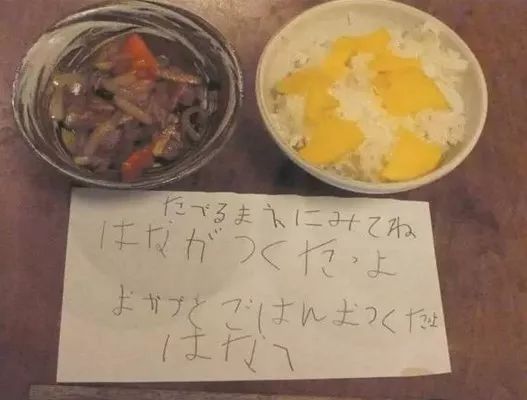 たべるまえにみてね
はなが つくたっよ
おかずとごはんおつくたよ
はなへ